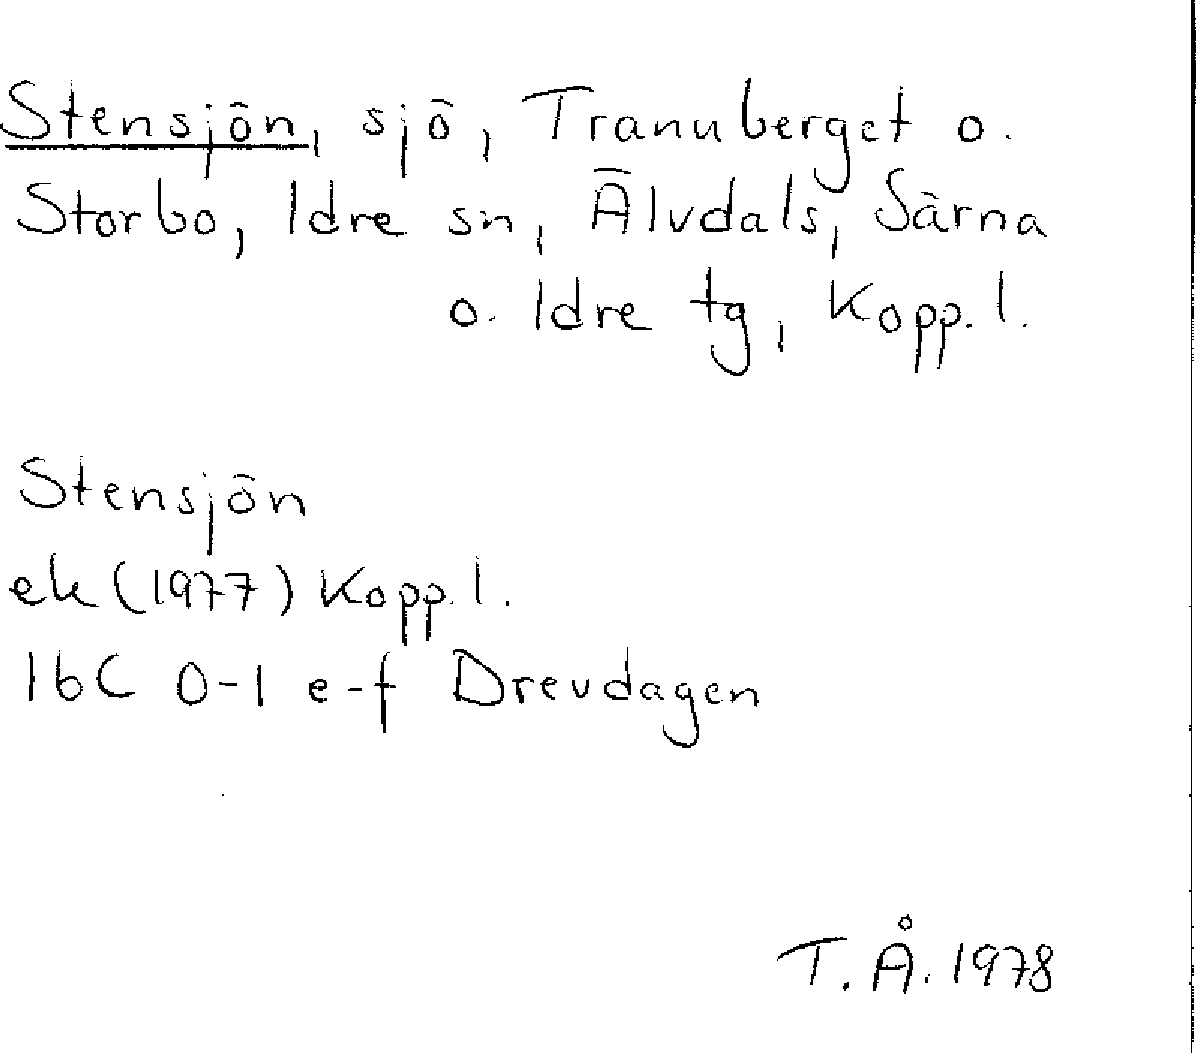 Stensjön, sjö, Tranuberget o.
Storbo, Idre sn, Älvdals, Särna
o. Idre tg, Kopp. l.
Stensjön
ek (1977) Kopp. l.
16C 0-1 e-f Drevdagen
T. Å. 1978